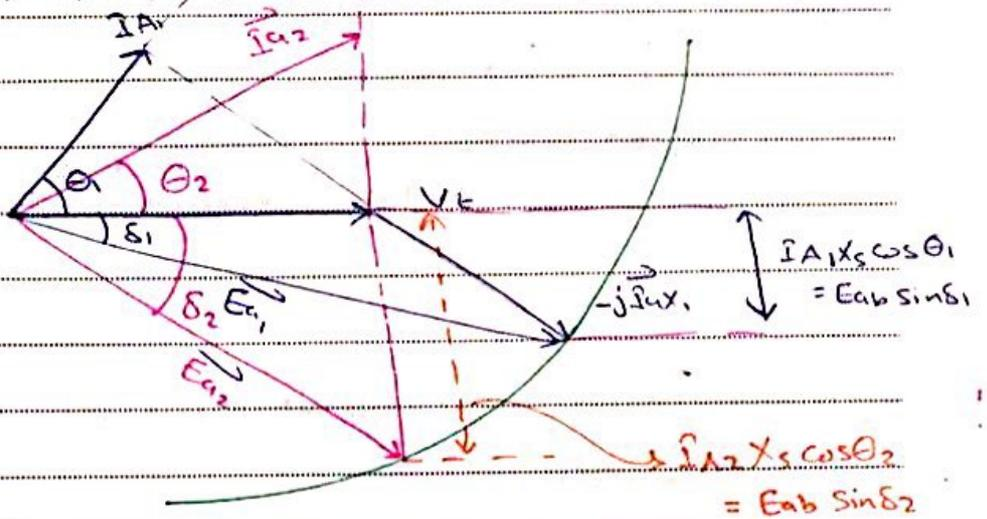 IA₁
Ia₂
θ₁
θ₂
Vt
δ₁
δ₂
Ea₁
Ea₂
IA₁Xs cosθ₁
= Eab sinδ₁
IA₂ Xs cosθ₂
= Eab Sinδ₂